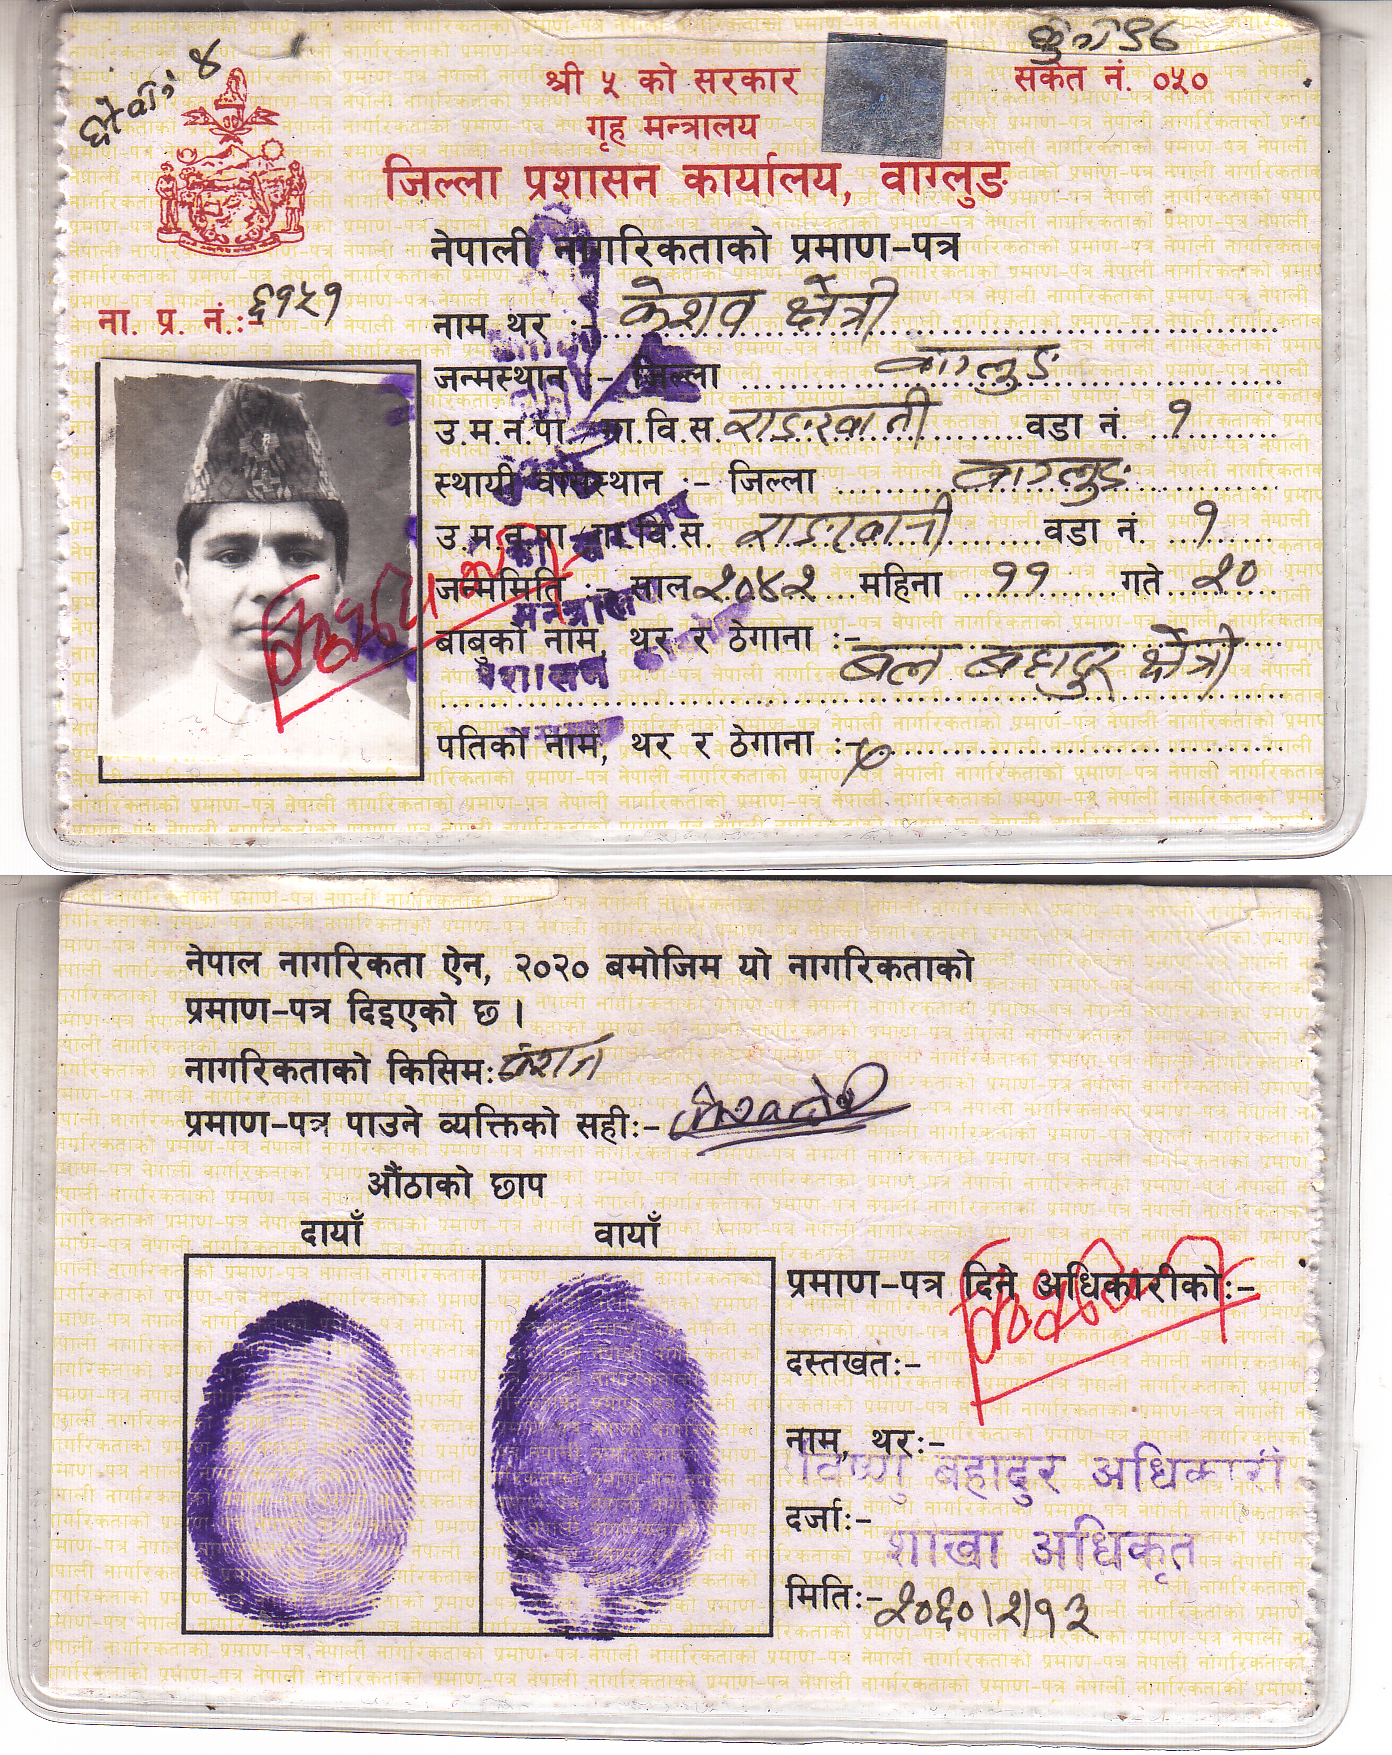 क्षे०नं ४
श्री ५ को सरकार
सकेत नं. ०५०
गृह मन्त्रालय
जिल्ला प्रशासन कार्यालय, वाग्लुङ
नेपाली नागरिकताको प्रमाण-पत्र
ना. प्र. नं.:- ६१५१
नाम थर :- केशव क्षेत्री
जन्मस्थान :- जिल्ला वाग्लुङ
उ.म.न.पा. गा.वि.स. राङखानी वडा नं. १
स्थायी वासस्थान :- जिल्ला वाग्लुङ
उ.म.न.पा. गा.वि.स. राङखानी वडा नं. १
जन्ममिति - साल २०४२ महिना ११ गते २०
बाबुको नाम, थर र ठेगाना :-
बल बहादुर क्षेत्री
पतिको नाम, थर र ठेगाना :-
नेपाल नागरिकता ऐन, २०२० बमोजिम यो नागरिकताको
प्रमाण-पत्र दिइएको छ ।
नागरिकताको किसिम: वंशज
प्रमाण-पत्र पाउने व्यक्तिको सही:-
औंठाको छाप
दायाँ वायाँ
प्रमाण-पत्र दिने अधिकारीको:-
दस्तखत:-
नाम, थर:-
विष्णु बहादुर अधिकारी
दर्जा:-
शाखा अधिकृत
मिति:- २०६०।२।१३